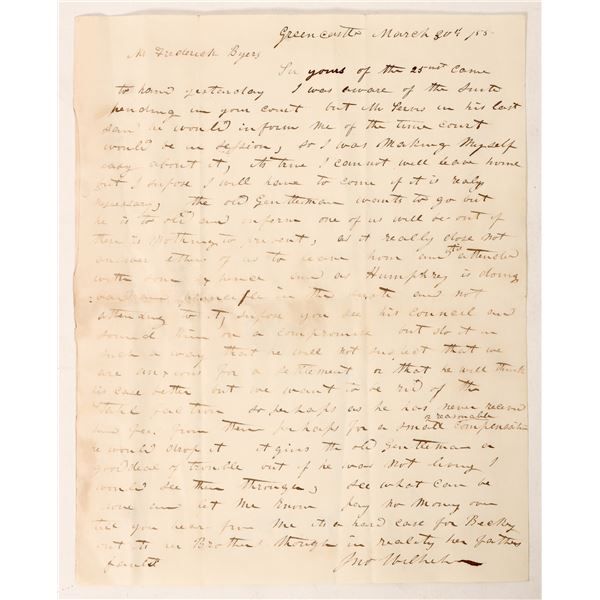 Greencastle March 30th /55
Mr Frederick Byers
Sir yours of the 25 came
to hand yesterday I was aware of the Suit
pending in your court but Mr in his last
said he would inform me of the time court
would be in session, so I was making myself
easy about it, its true I cannot well leave home
but I supose I will have to come if it is realy
necessary, the old Gentleman wants to go but
he is to old and inform one of us will be out if
there is nothing to prevent, as it really dose not
answer either of us to leave home and tis attended
with some expence and as Humphrey is doing
in the and not
attending to it, supose you see his council and
sound them on a compromise but do it in
such a way that he will not suspect that we
are anxious for a settlement or that he will think
his case better but we want to be rid of the
so perhaps as he has never received
any pay from them perhaps for a small or reasonable compensation
he would drop it it gives the old Gentleman a
good deal of trouble but if he was not living I
would see them through, see what can be
done and let me know pay no money over
till you hear from me its a hard case for Becky
but its in Brother though in reality her fathers
fault Jno Wilhelm